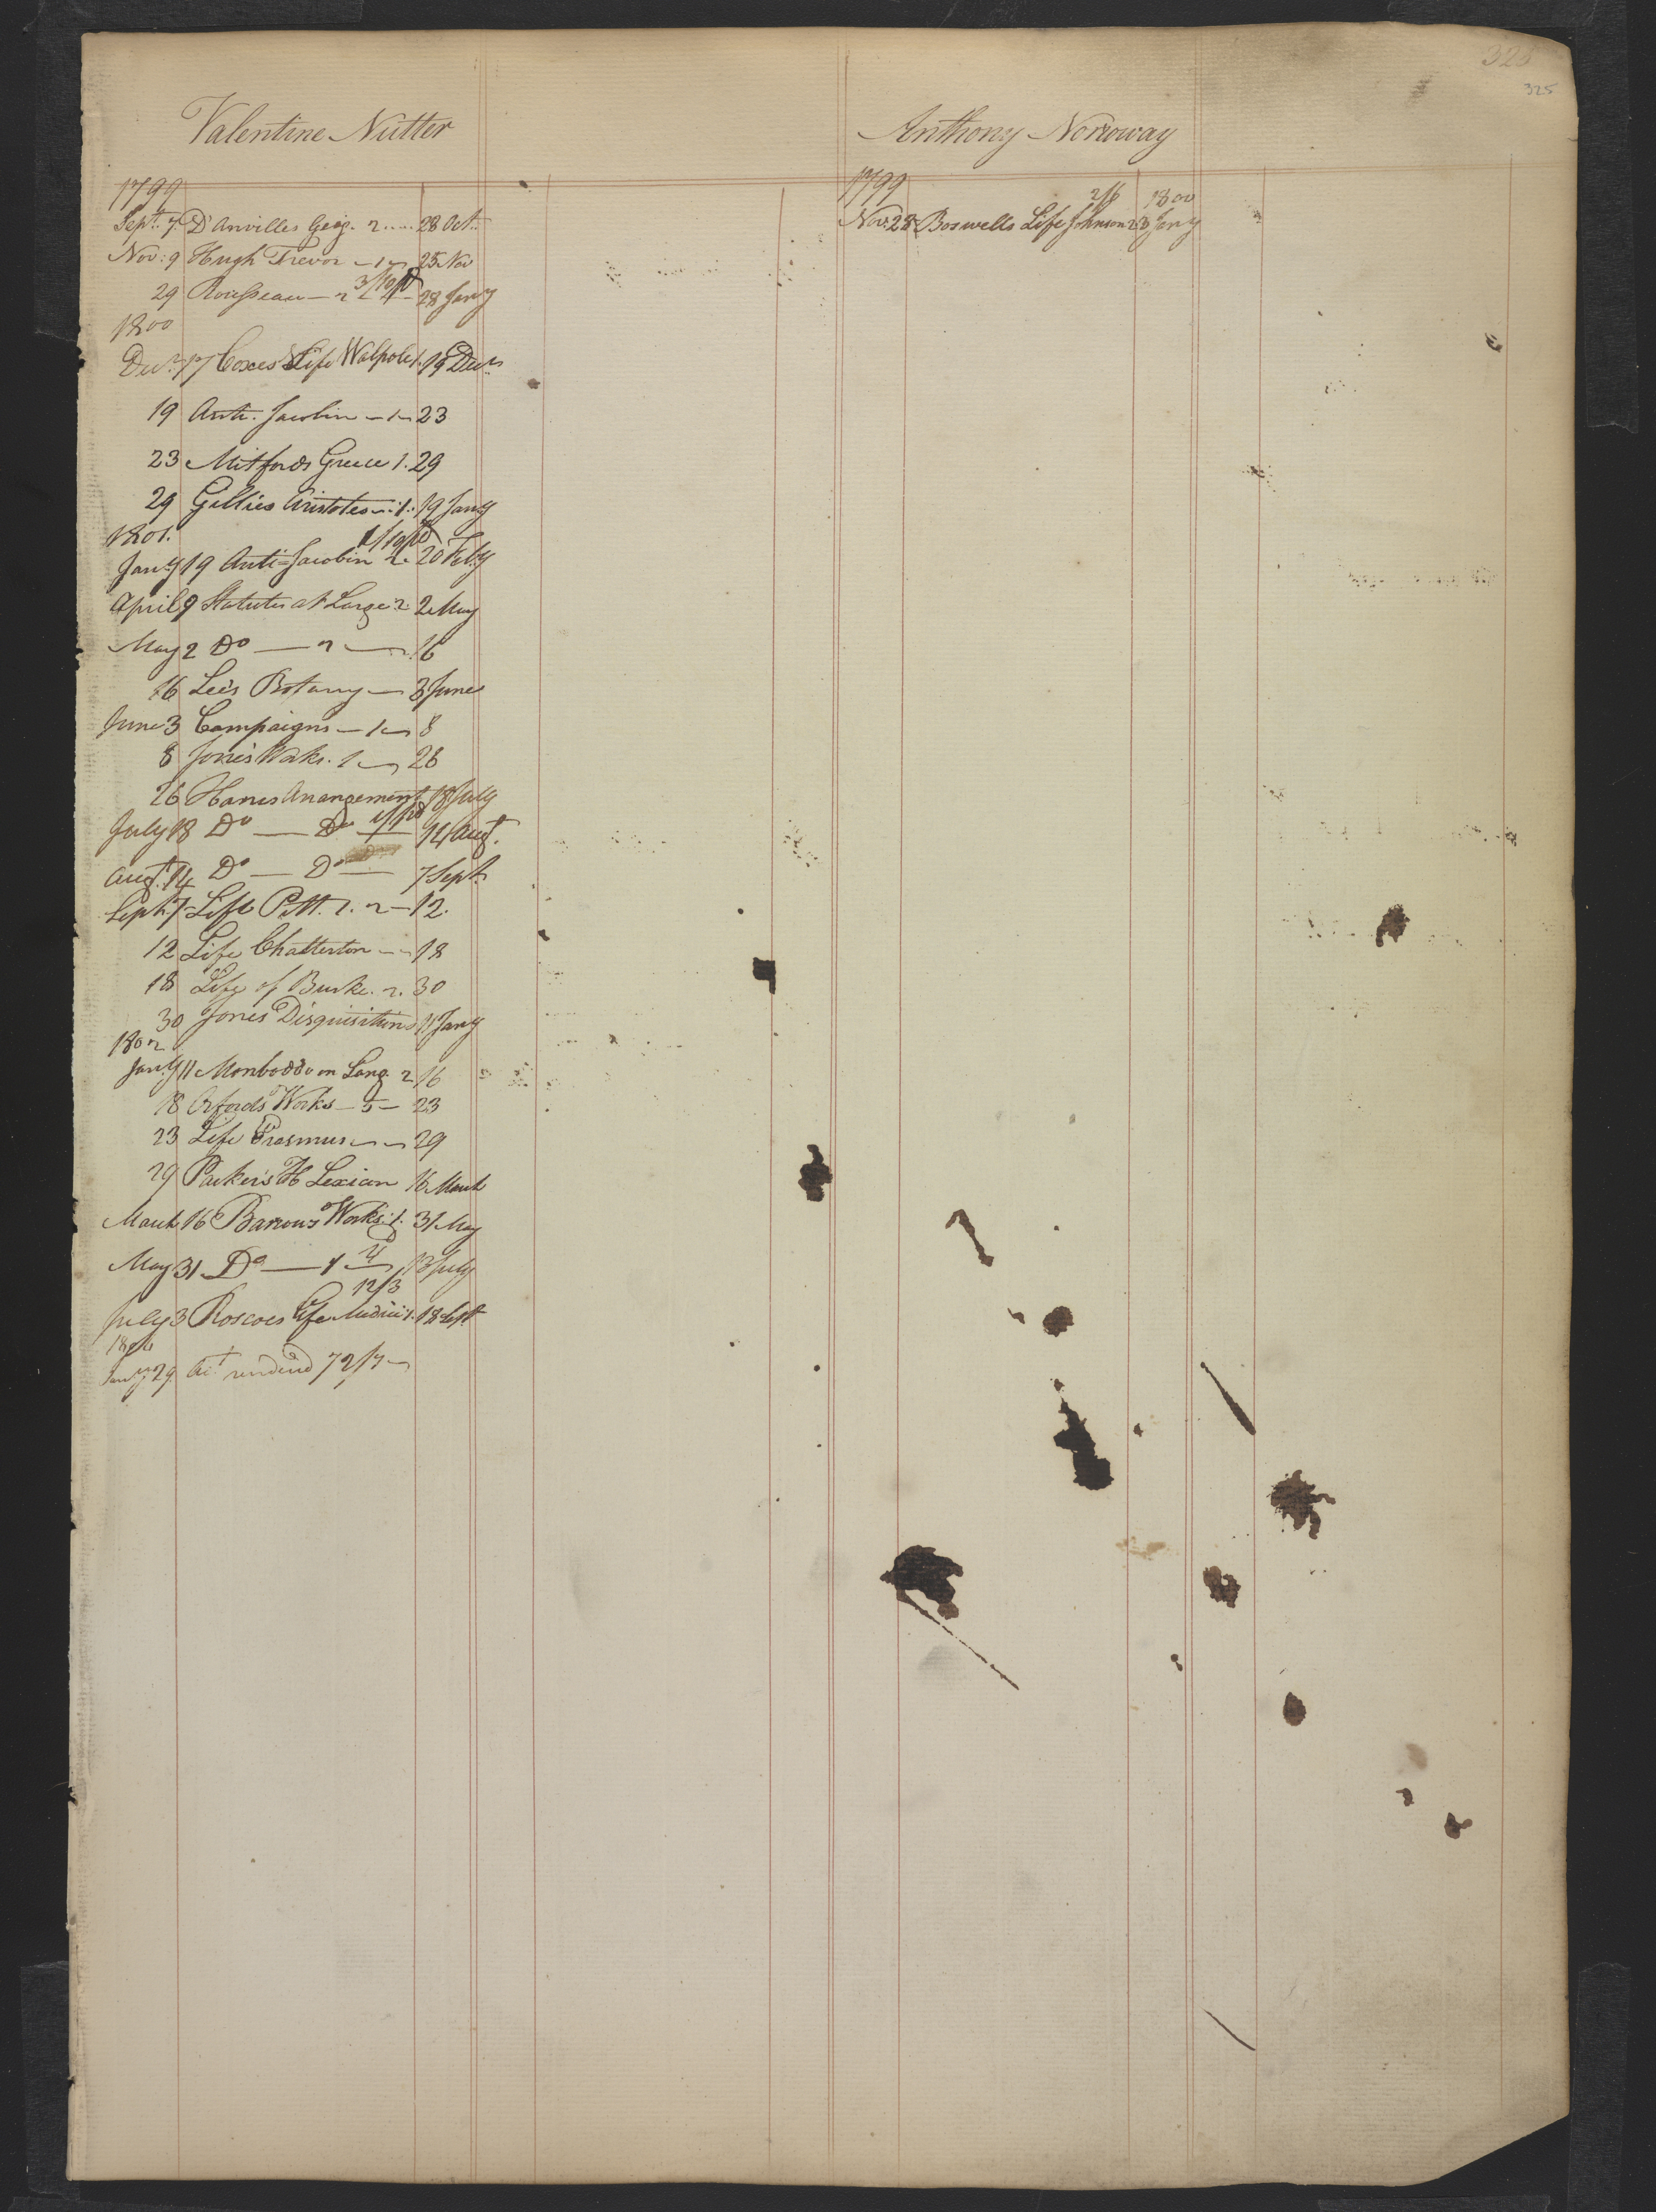 325
Valentine Nutter
1799
Sept. 7 D'Anvilles Geog. 2 28 Oct.
Nov: 9 Hugh Trevor — 1 — 25 Nov
3/10 pd
29 Rousseau — 2 — 28 Jany
1800
Decr. 17 Coxes Life Walpole 1. 19 Decr
19 Anti-Jacobin — 1 — 23
23 Mitfords Greece 1. 29
29 Gillies Aristotes 1. 19 Jany
1801.
Jany 19 Anti-Jacobin 2. 20 Feby
April 9 Statutes at Large 2. 2 May
May 2 Do — 2 — 16
16 Lee's Botany — 3 June
June 3 Campaigns — 1 — 8
8 Jones Works. 1 — 26
26 Arrangement 18 July
July 18 Do — Do — 14 Augt.
Augt. 14 Do — Do — 7 Sept.
Sept. 7 Life Pitt. 1. 2 — 12.
12 Life Chatterton — 18
18 Life of Burke. 2. 30
30 Jones Disquisitions 11 Jany
1802
Jany 11 Monboddo on Lang. 2 16
18 Orfords Works — 5 — 23
23 Life Erasmus — 29
29 Parker's H Lexicon 16 March
March 16 Barrows Works. 1. 31 May
May 31 Do — 1 — 13 July
12/3
July 3 Roscoes Life Medici 1. 18 Sept
Jany 29. Act. rendered 72/7
Anthony Norroway
1799
2/6 1800
Nov. 28 Boswells Life Johnson 2. 3 Jany